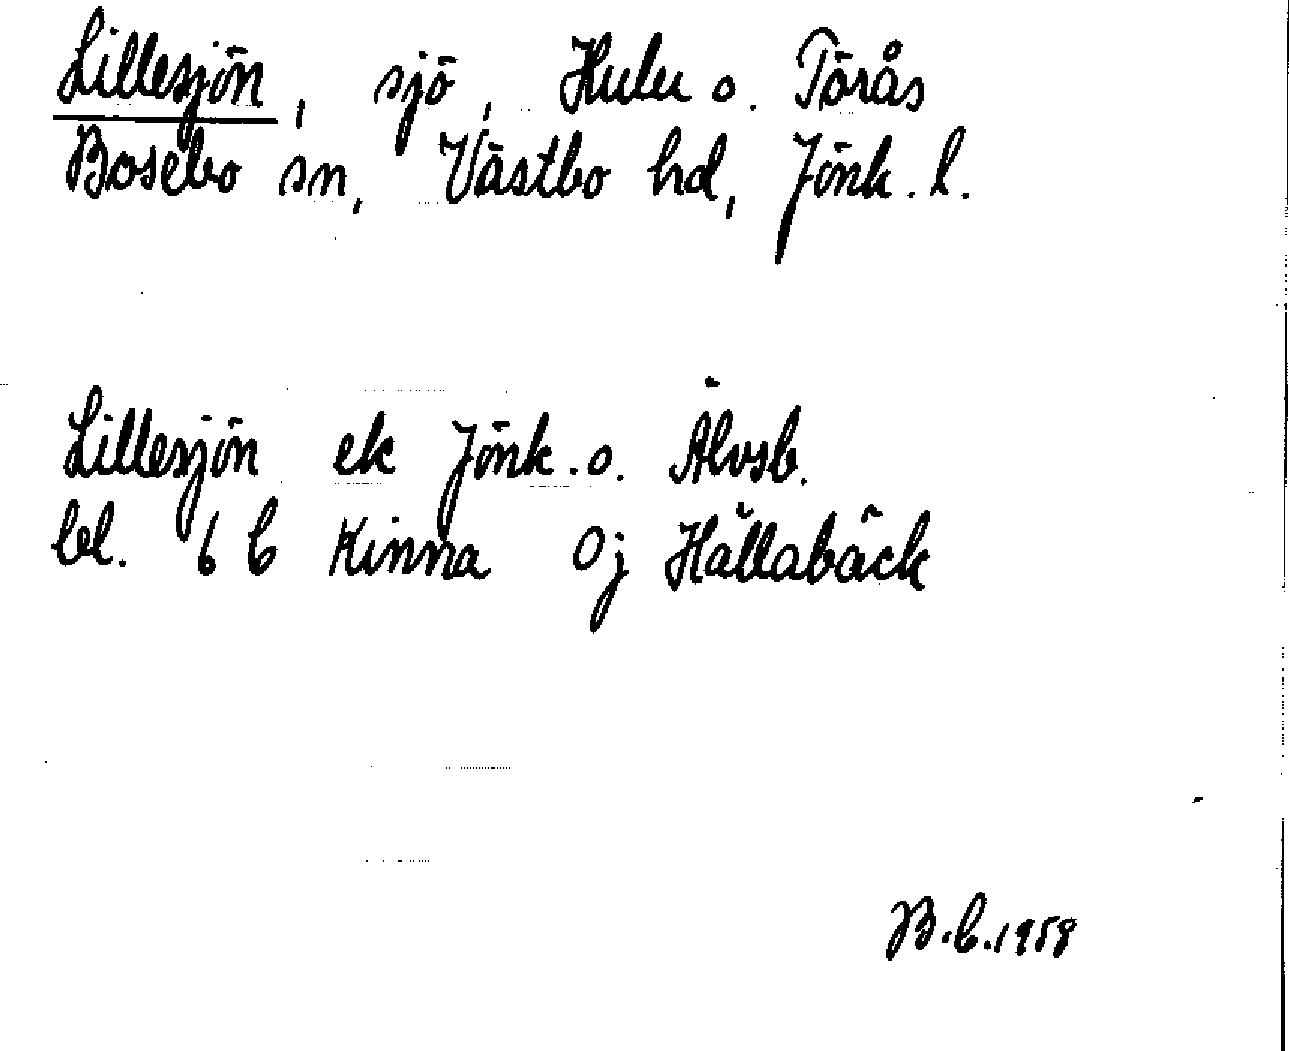 Lillesjön, sjö, Hulu o. Törås
Bosebo sn, Västbo hd, Jönk. l.
Lillesjön ek Jönk. o. Älvsb.
bl. 6 C Kinna 0j Hällabäck
B.C. 1958